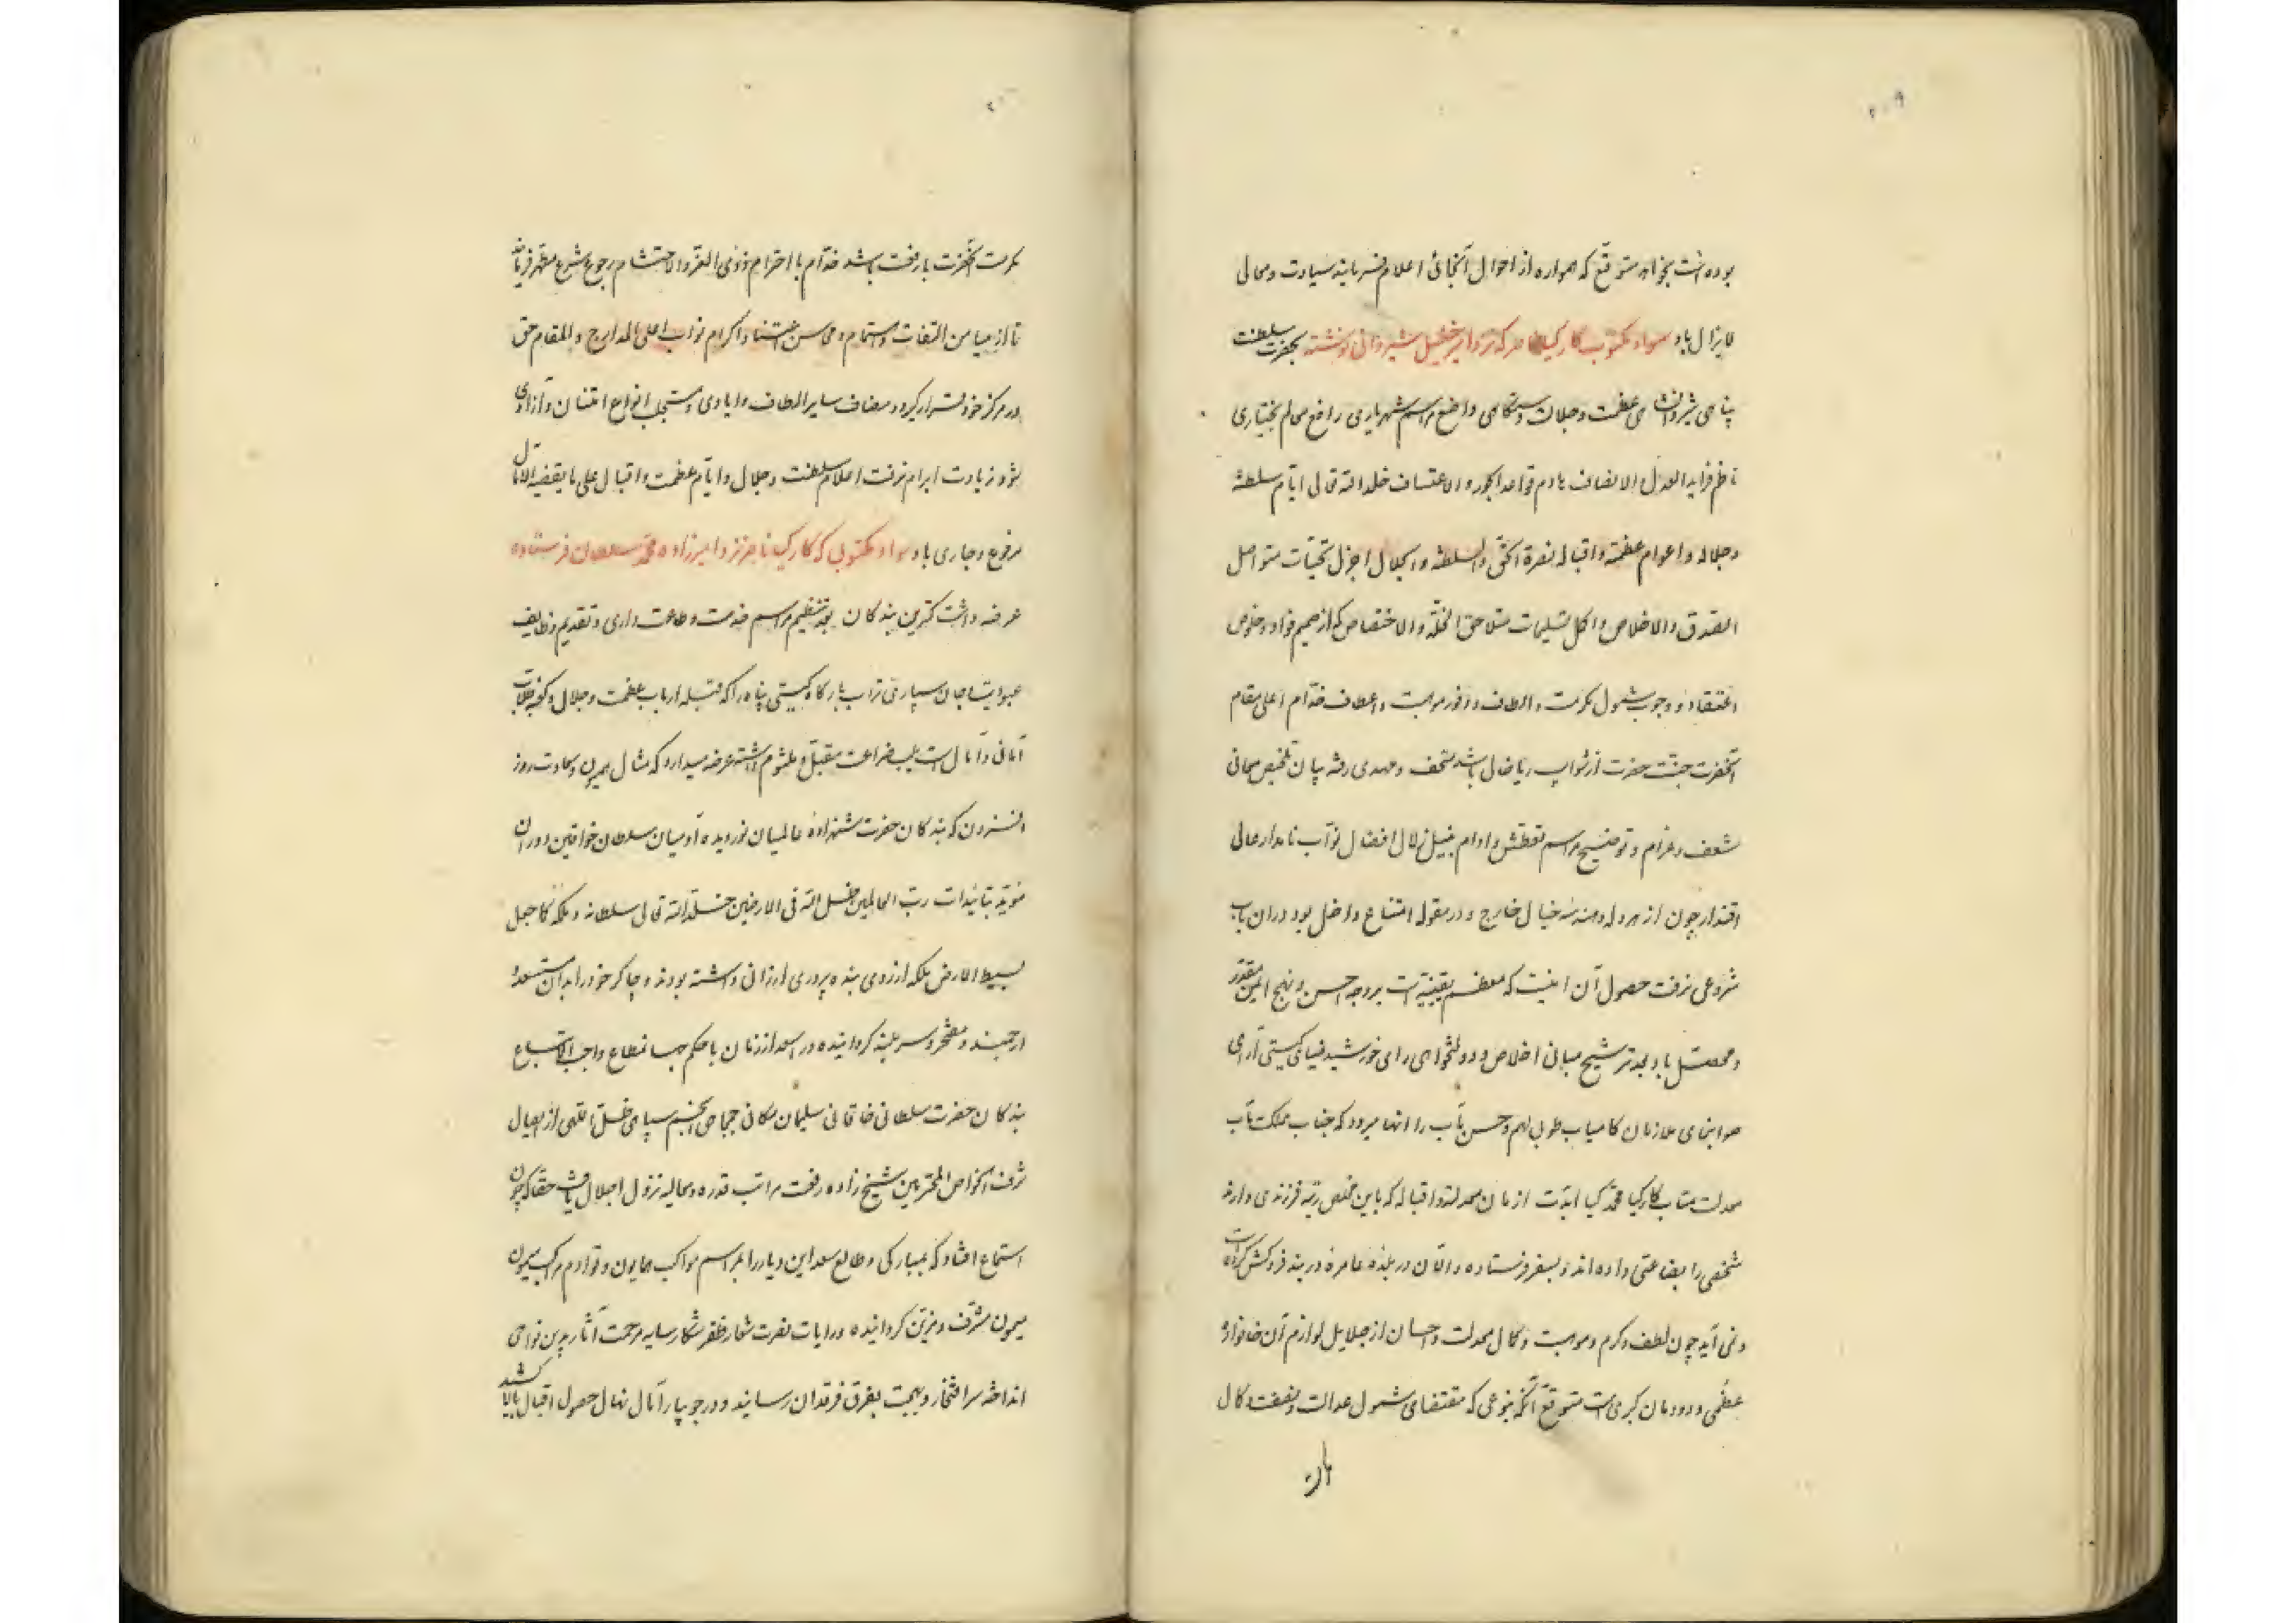 بوده است بخواهد متوقع که همواره از احوال آنجائی اعلام فرمایند سیادت و معالی
لایزال باد سواد مکتوب کارکیا که نزد امیر خلیل شیروانی نوشته بحضرت سلطنت
پناهی شیروانشاهی عظمت و جلالت دستگاهی واضع مراسم شهریاری رافع معالم بختیاری
ناظم فراید العدل و الانصاف هادم قواعد الجور و الاعتساف خلد الله تعالی ایام سلطنته
و جلاله و اعوام عظمته و اقباله لنصرة الحق و السلطنه و الجلال اجزل تحیات متواصل
الصدق و الاخلاص و اکمل تسلیمات متلاحق الخلة و الاختصاص که از صمیم فواد و خلوص
اعتقاد و وجوب شمول مکرمت و الطاف و وفور موهبت و اعطاف خدام اعلی مقام
آنحضرت جنت حضرت از شواب ریا خالی باشد متحف و مهدی داشته بیان تلخیص معانی
شعف و غرام و توضیح مراسم تعطش و اوام بنیل زلال افضال نواب نامدار عالی
اقتدار چون از هر وله و هندسه خیال خارج و در مقوله امتناع داخل بود در ان باب
شروعی نرفت حصول آن امنیت که معظم بقیتست بر وجه احسن و نهج ایمن مقدر
و محصل باد بعد ترشیح مبانی اخلاص و دولتخواهی رای خورشید ضیای گیتی آرای
صوابنمای ملازمان کامیاب طوبی لهم و حسن مآب را انها میرود که جناب مملکت مآب
معدلت متاب کارکیا محمد کیا ابدت ازمان معدلته و اقباله که باین مخلص رتبه فرزندی دارند
شخصی را بضاعتی داده اند و بسفر فرستاده و الآن در بلده عامره دربند فروکش کرده است
و نمی آید چون لطف و کرم و موهبت و کمال معدلت و احسان از جلایل لوازم آن خانواده
عظمی و دودمان کبری است متوقع آنکه بنوعی که مقتضای شمول عدالت و نصفت و کمال
مکرمت آنحضرت بارفعت باشد خدام با احترام ذوی العز و الاحتشام رجوع بشرع مطهر فرمایند
تا از میامن التفات و اهتمام و محاسن اعتنا و اکرام نواب اعلی المدارج و المقام حق
در مرکز خود قرار گیرد و مضاف سایر الطاف و ایادی و مستجلب انواع امتنان و آزادی
شود زیادت ابرام نرفت اعلام سلطنت و جلال و ایام عظمت و اقبال علی ما یقتضیه الآمال
مرفوع و جاری باد سواد مکتوبی که کارکیا ناصر نزد امیرزاده محمد سلطان فرستاده
عرضه داشت کمترین بندکان بعد تنظیم مراسم خدمت و طاعت داری و تقدیم وظایف
عبودیت و جان سپاری تراب بارکاه کیتی پناه را که قبله ارباب عظمت و جلال و کعبه طلاب
امانی و آمال است بلب ضراعت مقبل و ملثوم داشته عرضه میدارد که مثال همیون و سعادت روز
افزون که بندکان حضرت شهزاده عالمیان نور دیده آدمیان سلطان خواقین دوران
مؤید بتائیدات رب العالمین ظل الله فی الارضین خلد الله تعالی سلطانه و ملکه کما جعل
بسیط الارض ملکه از روی بنده پروری ارزانی داشته بودند و چاکر خود را بدان مستسعد
ارجمند و مفتخر و سربلند کردانیده در اسعد از زمان با حکم جهانمطاع واجب الاتباع
بندکان حضرت سلطانی خاقانی سلیمان مکانی جمجاهی انجم سپاهی ظل اللهی از ایصال
شرف الخواص المقربین شیخ زاده رفعت مراتب قدره و معالیه نزول اجلال یافت حقا که چون
استماع افتاد که بمبارکی و طالع سعد این دیار را بمراسم مواکب همایون و قوادم مراکب همیون
میمون مشرف و مزین کردانیده و رایات نصرت شعار ظفر شکار سایه مرحمت آثار بدین نواحی
انداخته سر افتخار و بهجت بفرق فرقدان رسانید و در جویبار آمال نهال حصول اقبال بالا کشید